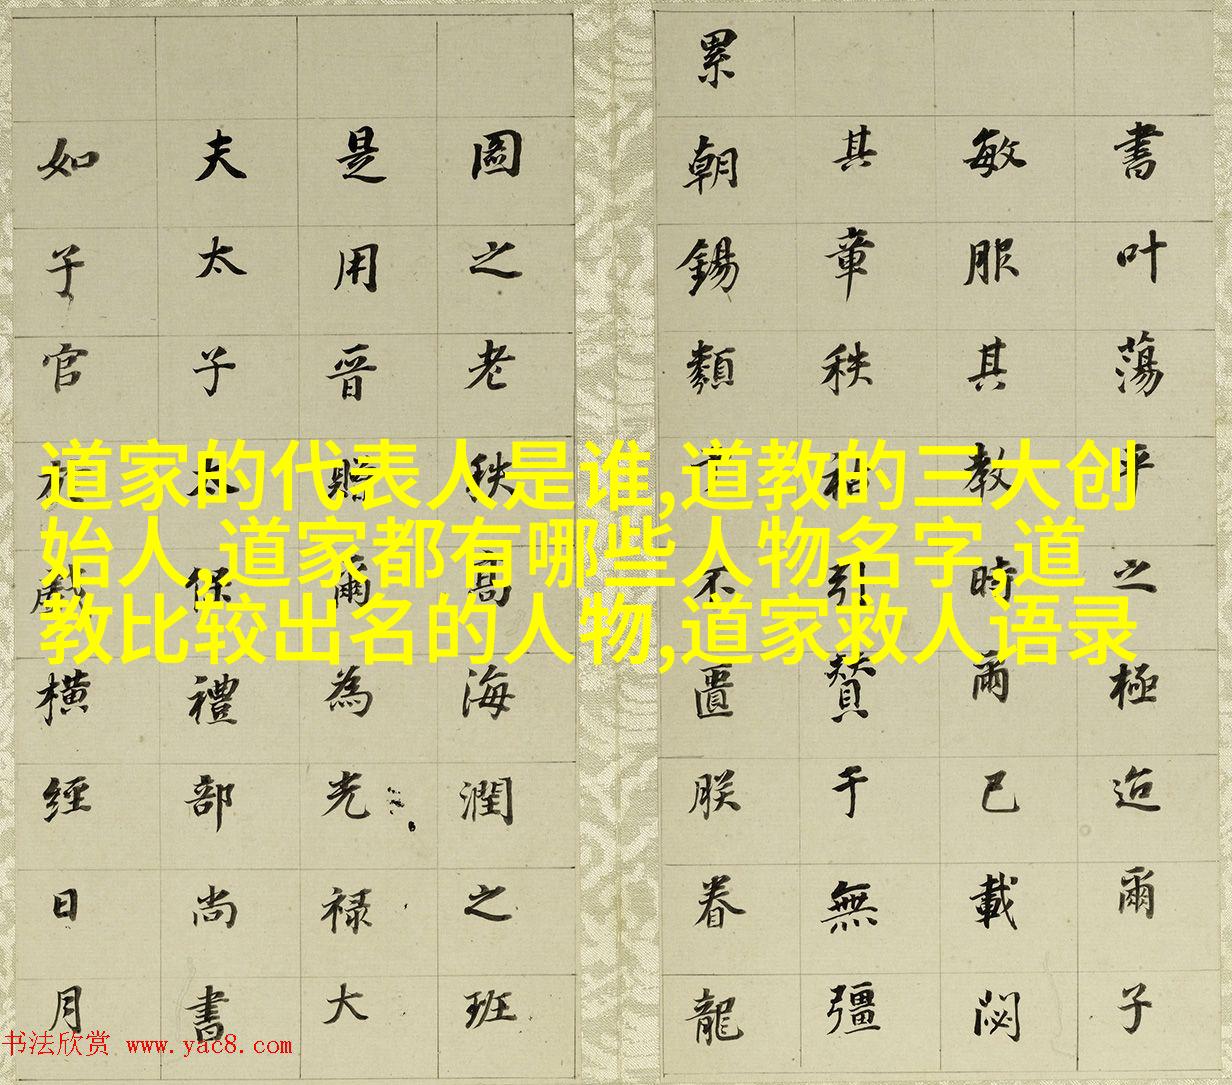 道家的代表人是谁,道教的三大创
始人,道家都有哪些人物名字,道
教比较出名的人物,道家救人语录
書叶蕩平之極迨爾子
敏服其教時爾已載閟
其章秩引贊于無彊
累朝錫類不匱朕眷龍
圖之老秩高海潤之班
是用晉賜爾為光禄大
夫太子太保禮部尚書
如子官於戲橫經日月
书法欣赏 www.yac8.com